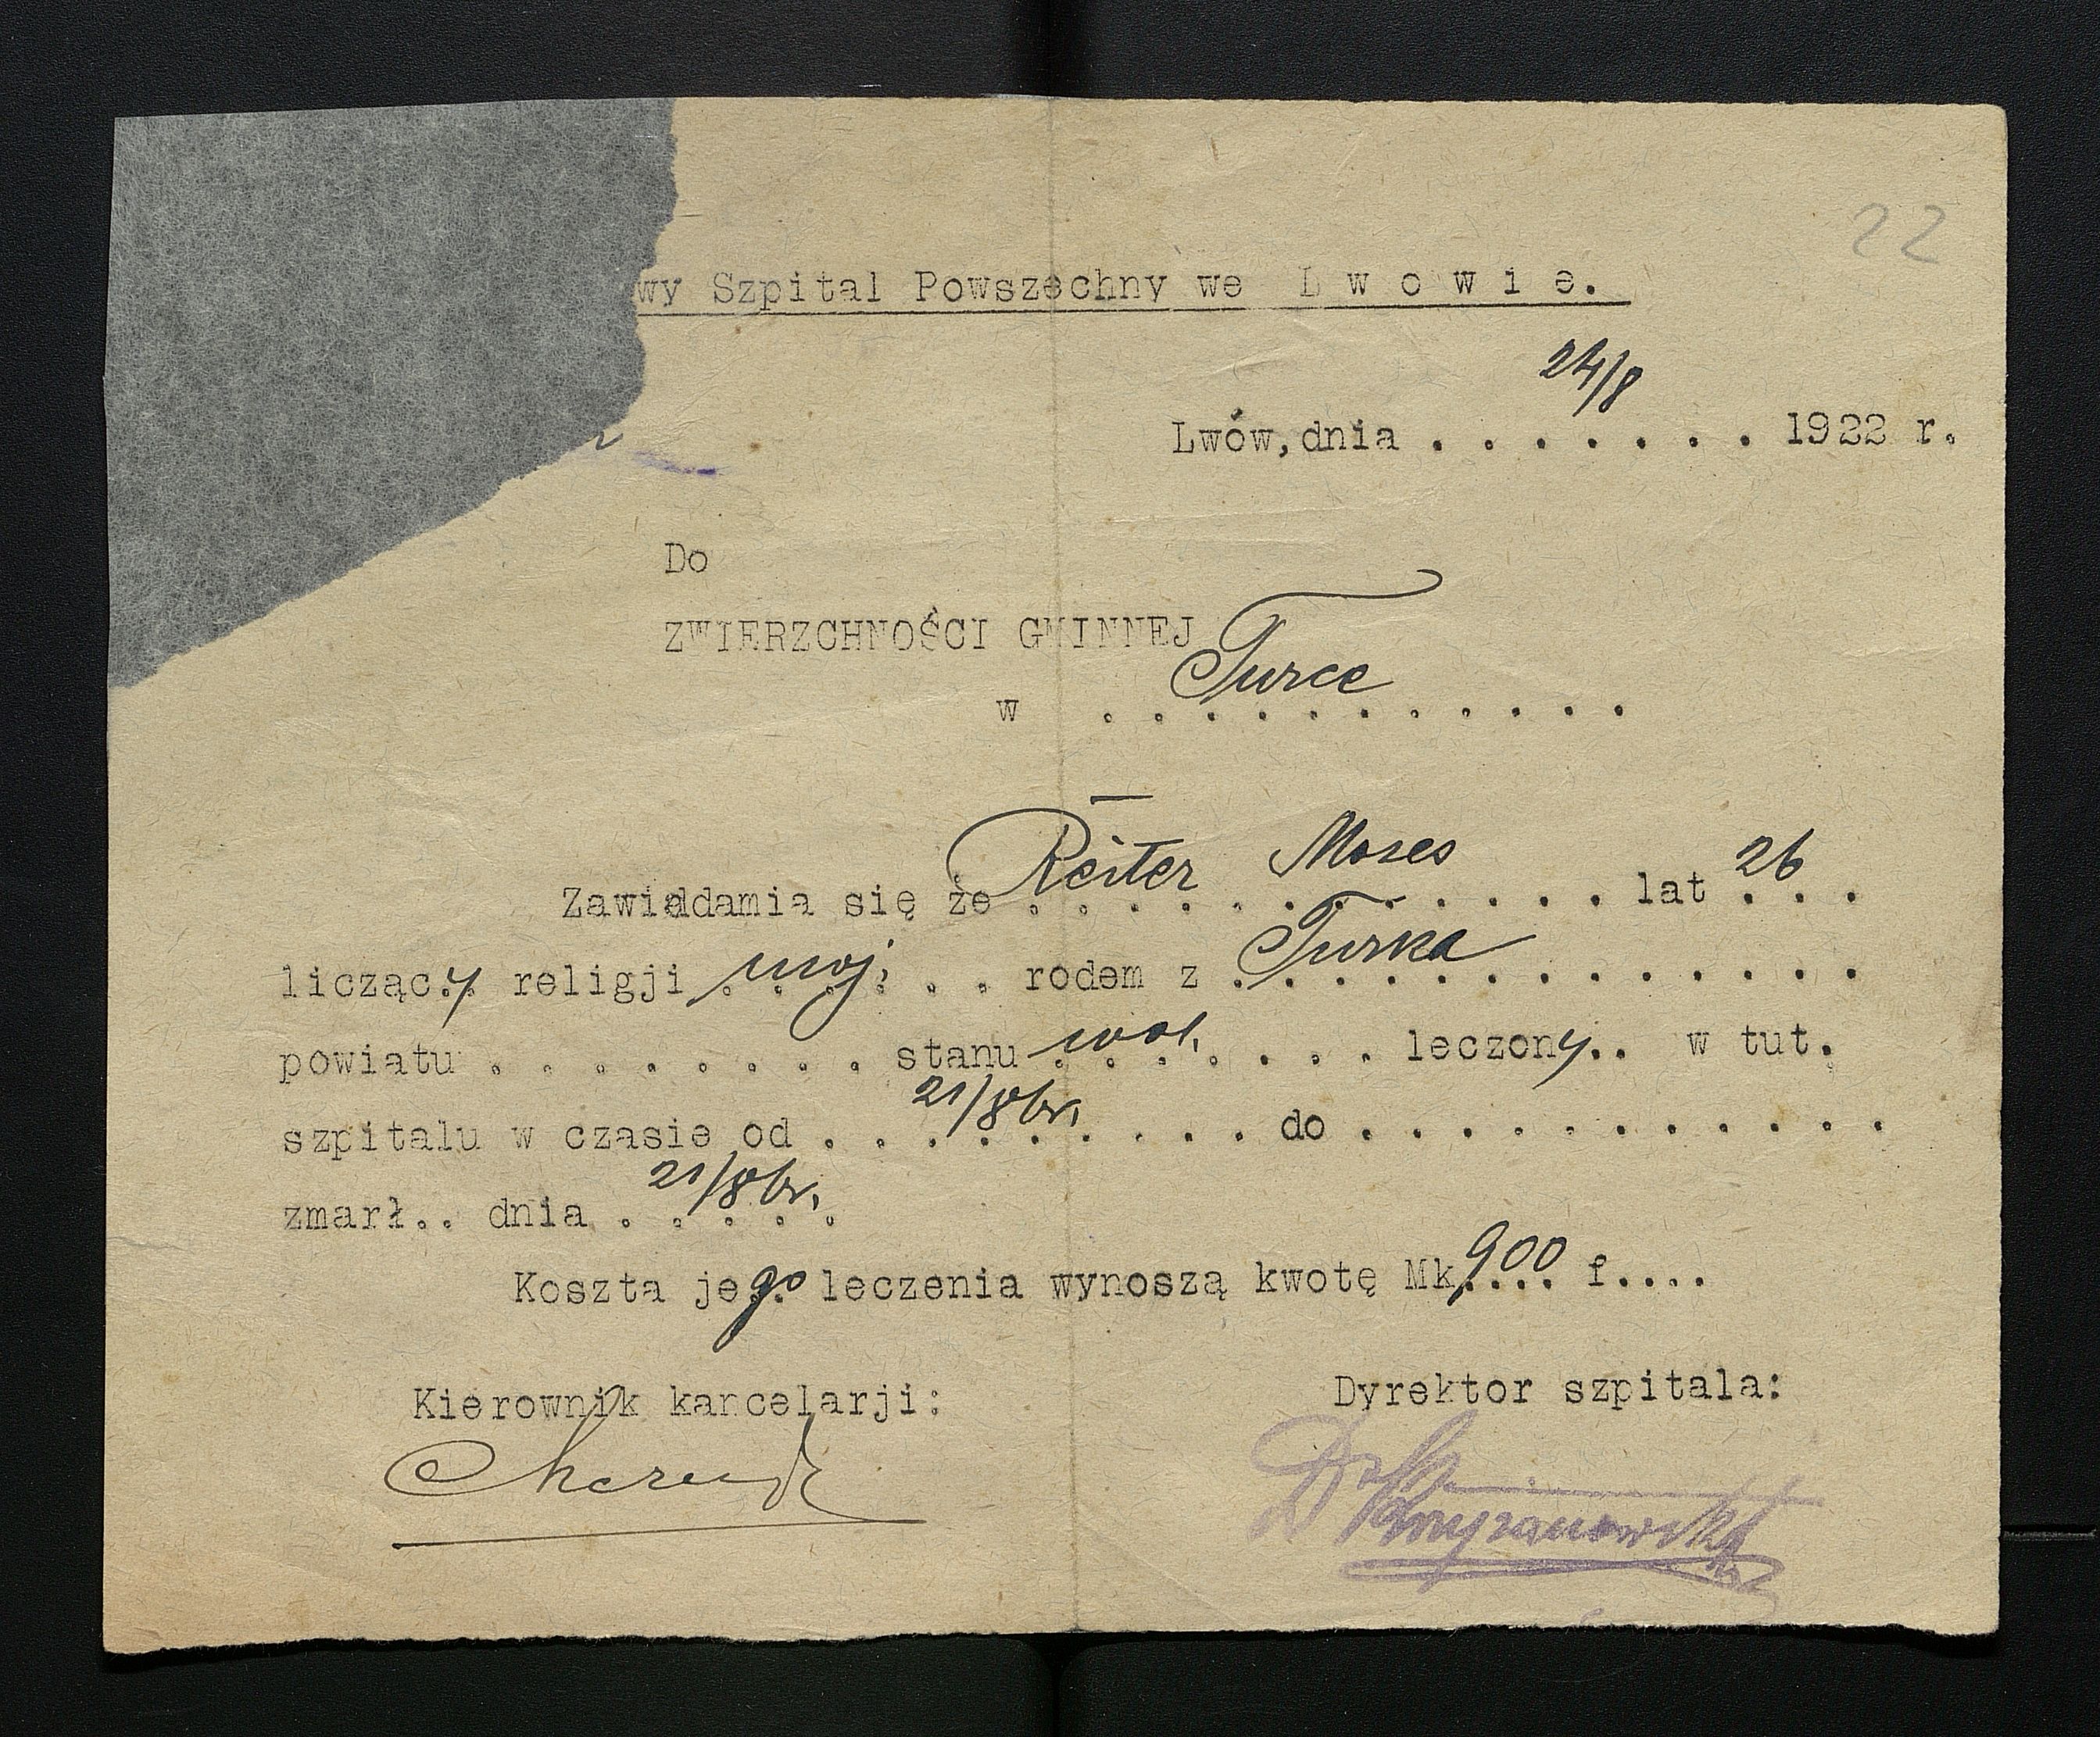 22
wy Szpital Powszechny we L w o w i e.
24/8
Lwów, dnia . . . . . . . 1922 r.
Do
ZWIERZCHNOŚCI GMINNEJ
w Turce . . . . . . . . . . .
Zawiadamia się że Reiter Moses . . . . lat 26 . . .
liczący religji moj. . . . rodem z Turka . . . . . . .
powiatu . . . . . . . . stanu wol. . . . . leczony.. w tut.
szpitalu w czasie od 21/8 br. . . . do . . . . . . . . . . .
zmarł.. dnia 21/8 br.
Koszta jego leczenia wynoszą kwotę Mk. 900 f....
Kierownik kancelarji:
Dyrektor szpitala:
Dr